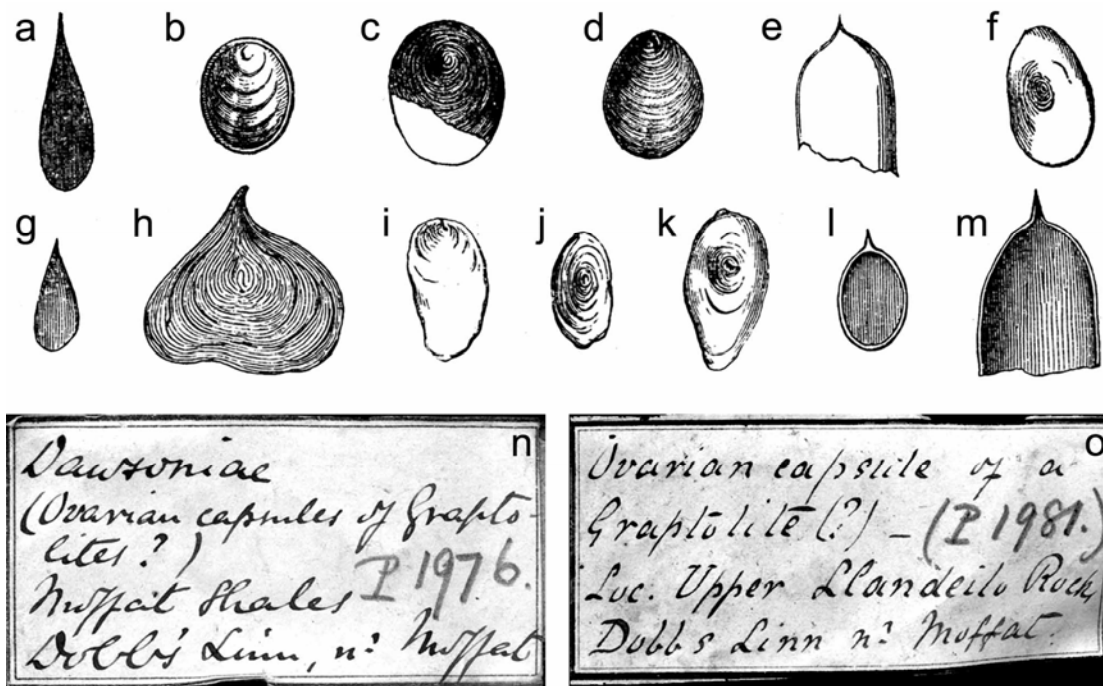 a b c d e f
g h i j k l m
n
Dawsoniae
(Ovarian capsules of Grapto-
lites?)
P 1976.
Moffat Shales
Dobb's Linn, nr Moffat
o
Ovarian capsule of a
Graptolite (?) - (P 1981.)
Loc. Upper Llandeilo Rock,
Dobb's Linn nr Moffat.